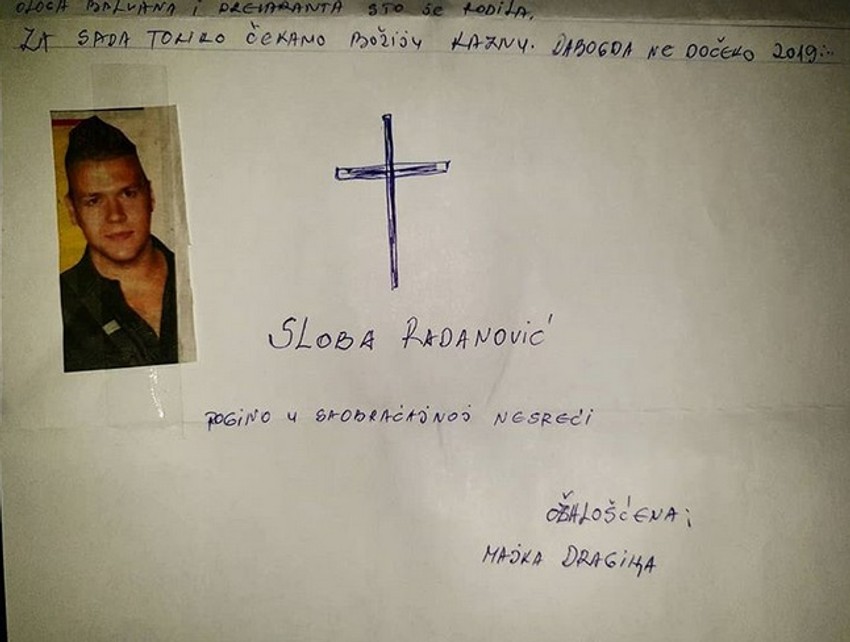 OLOGA BALVANA i DREVARANTA ŠTO SE RODILA,
ZA SADA TOLIKO ČEKAMO BOŽIJU KAZNU. DABOGDA NE DOČEKO 2019...
SLOBA RADANOVIĆ
POGINO U SAOBRAĆAJNOJ NESREĆI
OŽALOŠĆENA:
MAJKA DRAGINJA